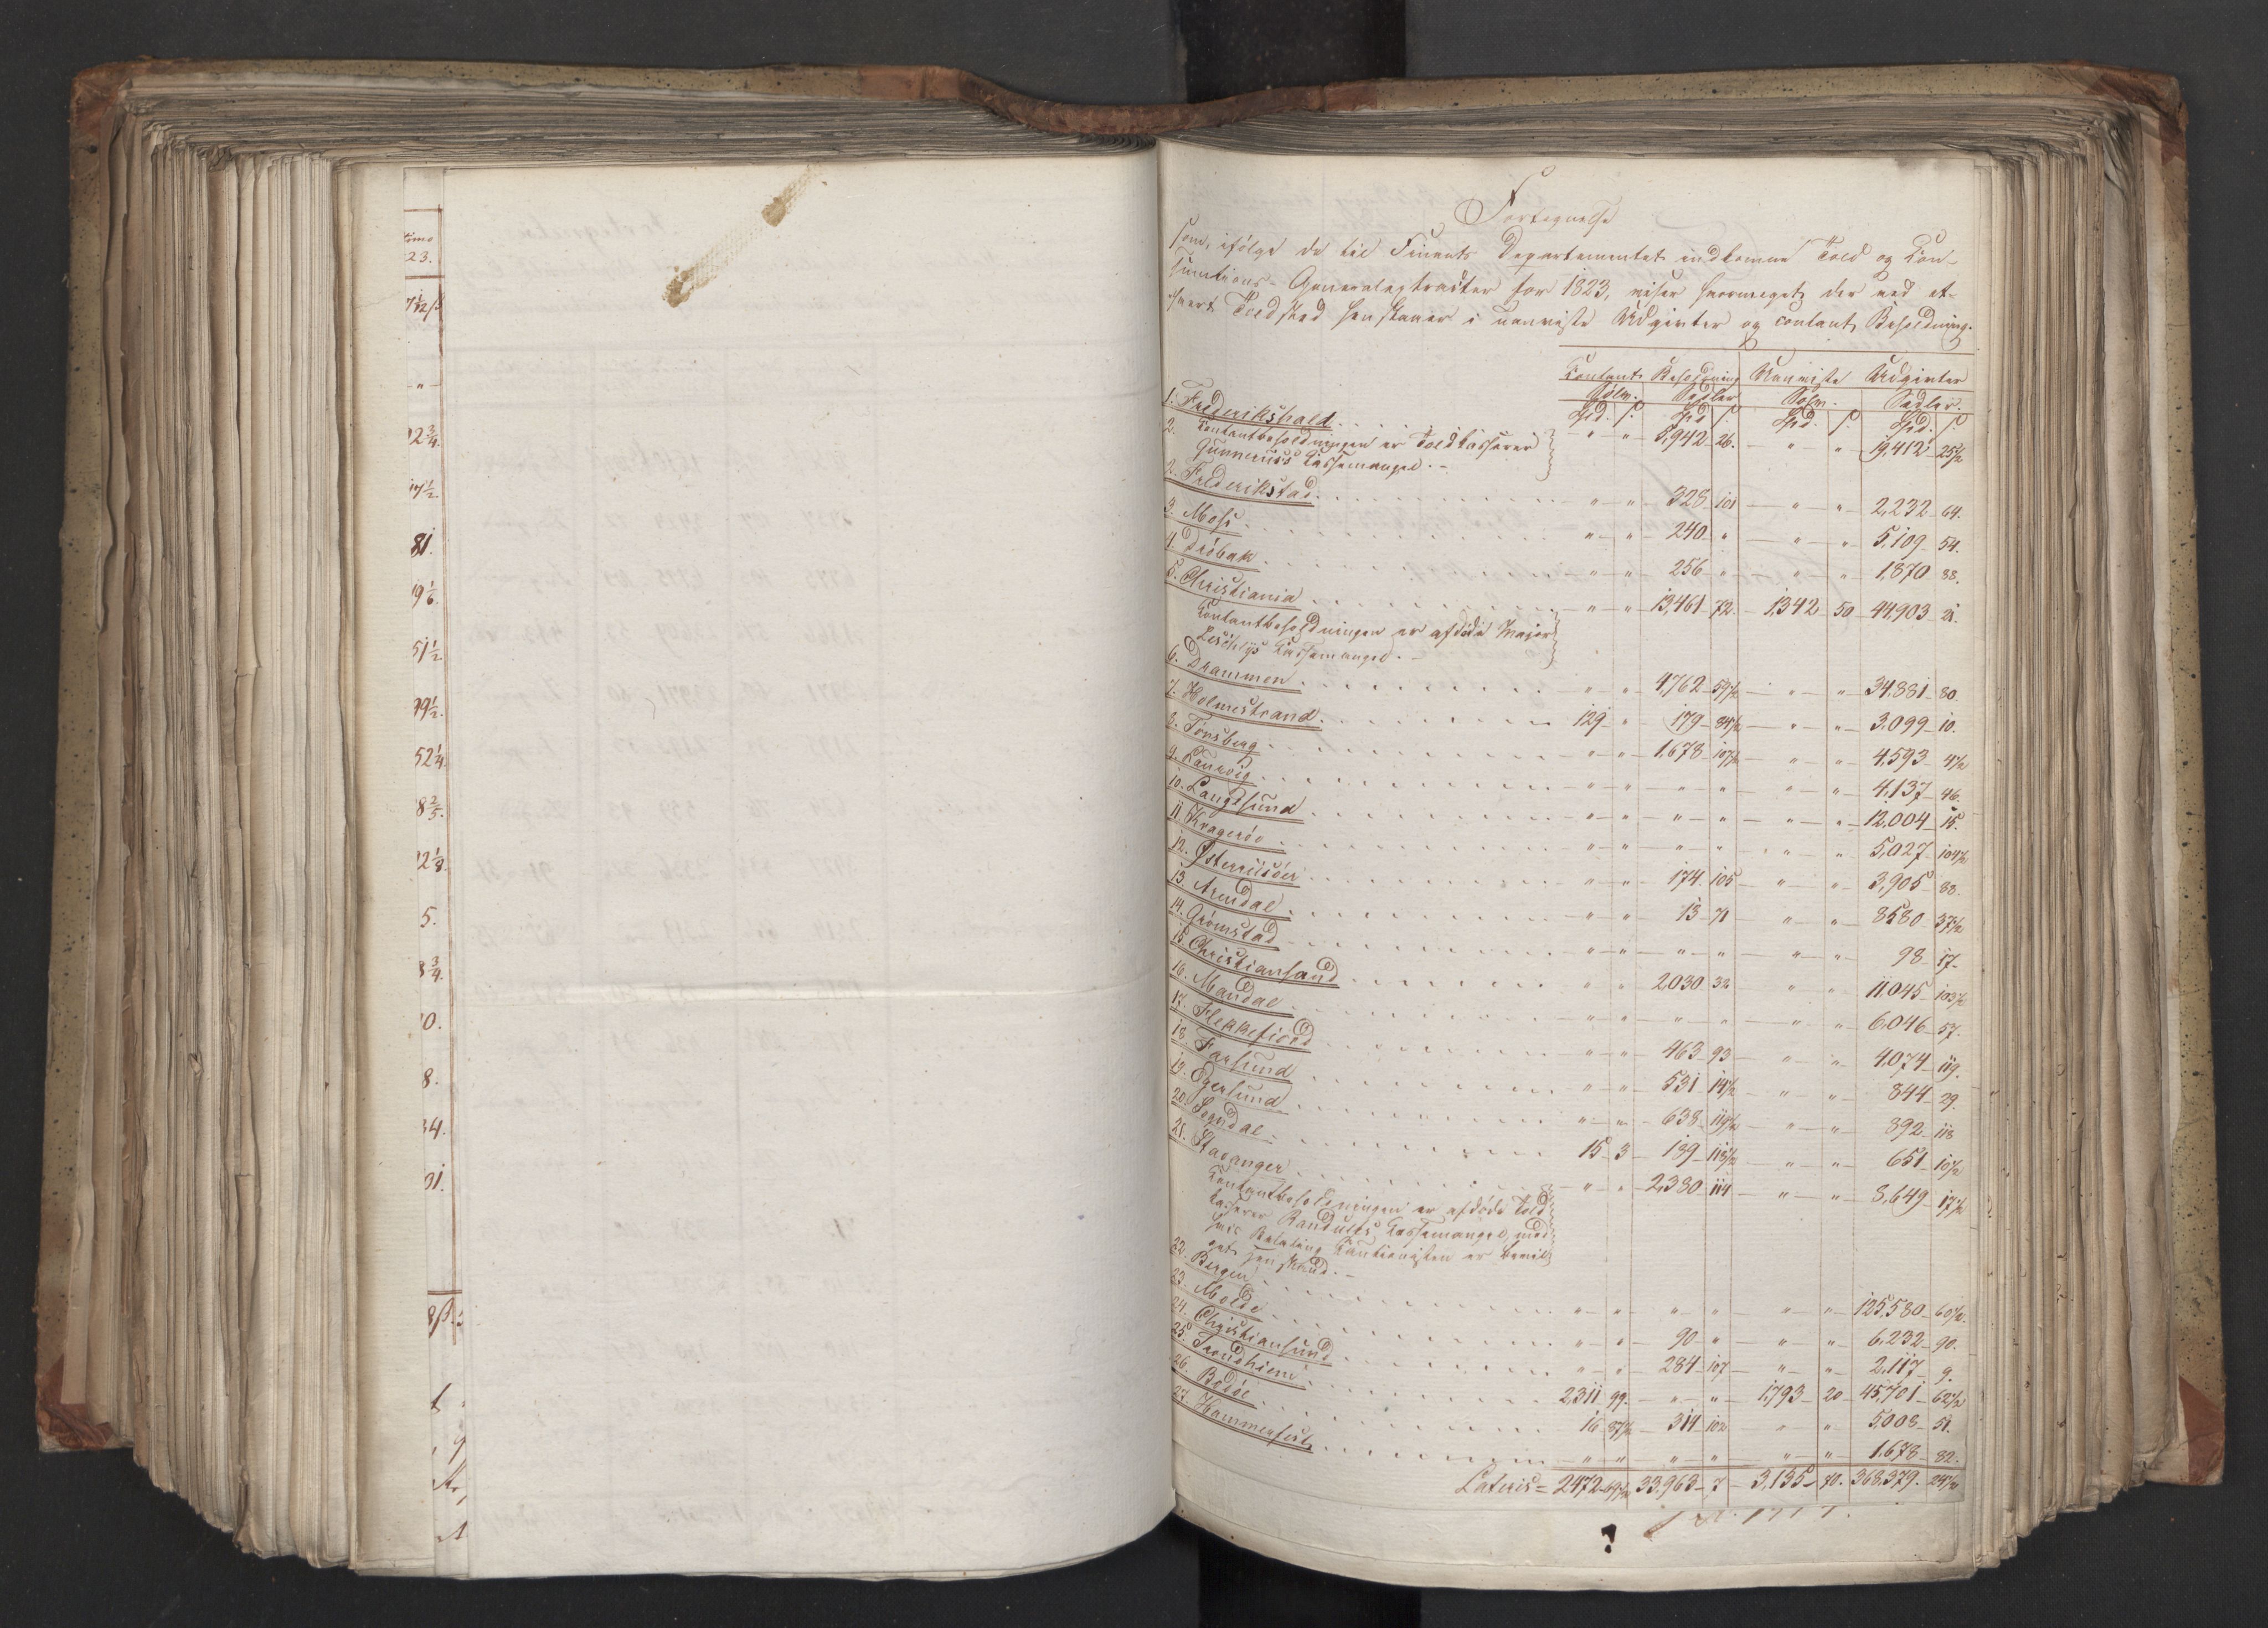 timo
23.
7 1/12 ß
- " -
92 3/4.
17 1/2
81.
9 1/6.
51 1/2
99 1/2.
52 1/4.
8 2/5.
2 1/8.
5.
3 3/4.
0.
8.
34.
01.
8 ß.
Fortegnelse
som, ifølge de til Finants Departementet indkomne Told og Con-
sumtions-Generalextracter for 1823, viser hvormeget der ved et-
hvert Toldsted henstaaer i uanviste Udgivter og contant Beholdning.
Contant Beholdning Uanviste Udgivter
Sølv. Sedler Sølv. Sedler.
Spd. ß. Spd. ß. Spd. ß Spd. ß.
1. Frederikshald . . . " " 5,942 26. " " 19,412 25 1/2
Contantbeholdningen er Toldkasserer
Gunnerius's Cassemangel. -
2. Frederikstad . . . " " 328 101 " " 2,232 64.
3. Moss . . . " " 240 " " " 5,109 54.
4. Dröbak . . . " " 256 " " " 1,870 38.
5. Christiania . . . " " 13,461 72. 1,342 50 44,903 21.
Contantbeholdningen er afdøde Major
Leschlys Cassemangel. -
6. Drammen . . . " " 4,762 59 1/2 " " 34,881 80
7. Holmestrand . . . 129 " 179 34 1/2 " " 3,099 10.
8. Tönsberg . . . " " 1,678 107 1/2 " " 4,593 4 1/2
9. Laurvig . . . " " " " " " 4,137 46.
10. Langesund . . . " " " " " " 12,004 15.
11. Krageröe . . . " " " " " " 5,027 104 1/2
12. Österriisöer . . . " " 174 105 " " 3,905 88.
13. Arendal . . . " " 13 71 " " 8580 37 1/2
14. Grömstad . . . " " " " " " 98 17.
15. Christiansand . . . " " 2,030 32 " " 11,045 103 1/2
16. Mandal . . . " " " " " " 6,046 57.
17. Flekkefiord . . . " " 463 93 " " 4,074 119.
18. Farsund . . . " " 531 14 1/2 " " 844 29.
19. Egersund . . . " " 638 119 1/2 " " 892 118
20. Sogndal . . . 15 3 139 113 1/2 " " 651 10 1/2
21. Stavanger . . . " " 2,380 114 " " 3,649 17 1/2
Contantbeholdningen er afdøde Told-
kasserer Randulfs Cassemangel, med
hvis Betaling Cautionisten er bevil-
get Henstand. -
22. Bergen . . . " " " " " " 125,580 60 1/2.
23. Molde . . . " " 90 " " " 6,232 90.
24. Christiansund . . . " " 284 107 " " 2,117 9.
25. Trondhiem . . . 2,311 99. " " 1,793 20 45,701 62 1/2
26. Bodöe . . . 16 87 1/2 314 102 " " 5,008 51.
27. Hammerfest . . . " " " " " " 1,678 82.
Lateris = 2472 69 1/2 33,963 7 3,135 70. 368,379. 24 1/2